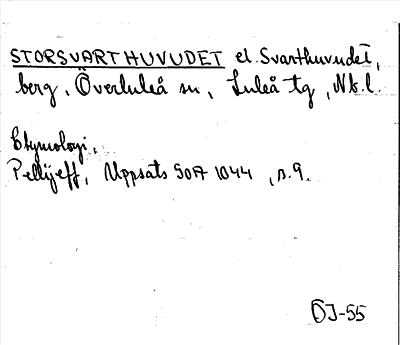 STORSVARTHUVUDET el. Svarthuvudet,
berg, Överluleå sn, Luleå tg, Nb.l.
Etymologi.
Pellijeff, Uppsats SOA 1044, s. 9.
ÖJ-55